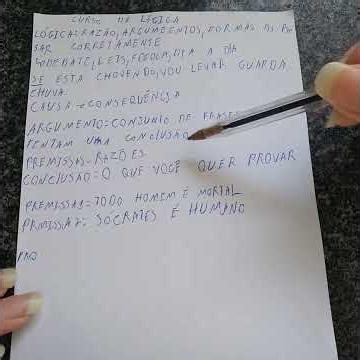 CURSO DE LÓGICA
LÓGICA=RAZÃO, ARGUMENTOS, FORMAS DE PEN
SAR CORRETAMENTE
DEBATE, LEIS, DIA A DIA
SE ESTA CHOVENDO, VOU LEVAR GUARDA
CHUVA.
CAUSA = CONSEQUÊNCIA
ARGUMENTO=CONJUNTO DE FRASES
TENTAM UMA CONCLUSÃO
PREMISSAS=RAZÕES
CONCLUSÃO=O QUE VOCÊ QUER PROVAR
PREMISSA1=TODO HOMEM É MORTAL
PRMISSA2: SÓCRATES É HUMANO